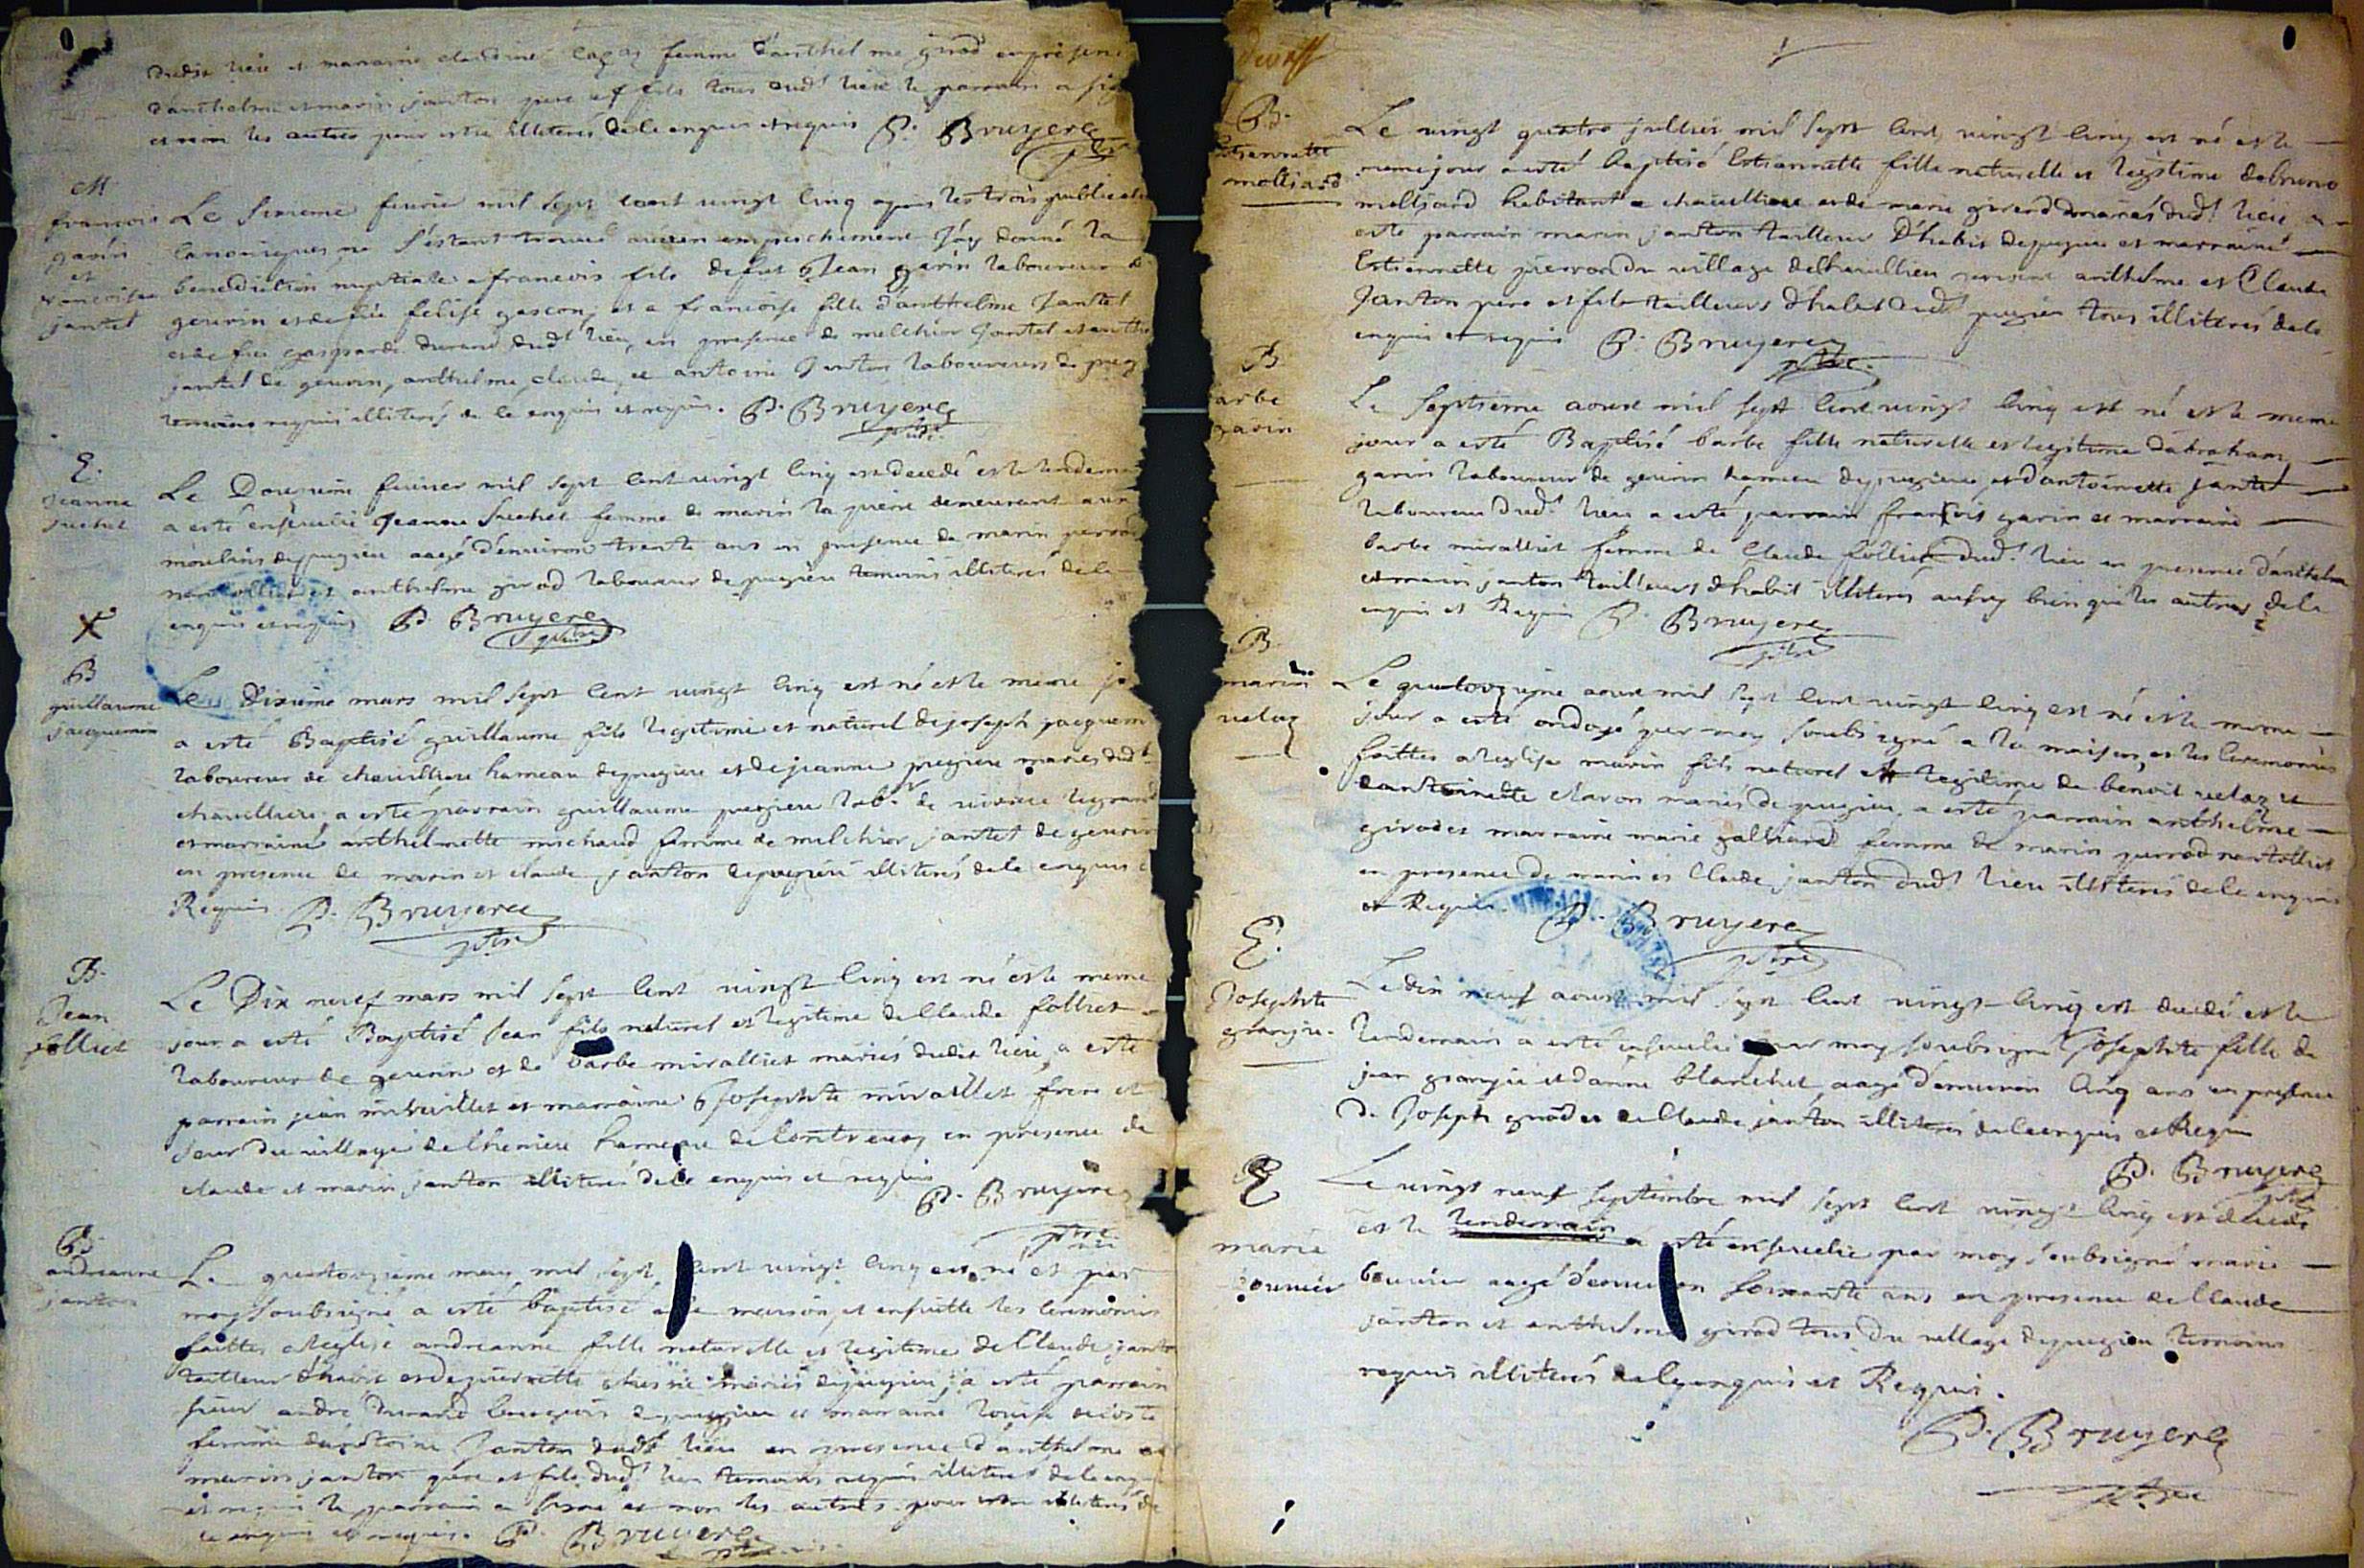 dudit lieu et marraine claudine femme d'anthelme girod en présen
d'anthelme et marin janton pere et fils tous dudt lieu le parrain a sig
et non les autres pour estre illiterés de ce enquis et requis P. Bruyere
ptre
M
francois
garin
et
francoise
jantet
Le sixieme fevrier mil sept cent vingt cinq apres les trois publications
canoniques ne s'estant trouvé aucun empeschement J'ay donné la
benediction nuptiale a francois fils de fut Jean garin laboureur de
geurin et de fue felise gascon, et a francoise fille d'anthelme Jantet
et de fue gasparde durand dudt lieu, en presence de melchior Jantet et anth
jantet de geurin, anthelme, claude, et antoine Janton laboureurs de pug
temoins requis illiterés de ce enquis et requis. P. Bruyere
ptre
E.
Jeanne
Suchet
Le Douzieme fevrier mil sept cent vingt cinq est decedé et le lendemai
a esté ensevelie Jeanne Suchet femme de marin la demeurant aux
moulins de pugieu aagé d'environ trente ans en presence de marin perrod
et anthelme girod laboureur de pugieu temoins illiterés de ce
enquis et requis P. Bruyere
ptre
X
B
guillaume
jacquemin
Le Dixieme mars mil sept cent vingt cinq est né et le meme jo
a esté Baptisé guillaume fils legitime et naturel de joseph jacquemi
laboureur de chavilliere hameau de pugieu et de jeanne pugieu mariés dudt
chavillieu a esté parrain guillaume pugieu labr. de le grand
et marraine anthelmette michaud femme de melchior jantet de geurin
en presence de marin et claude janton de pugieu illiterés de ce enquis e
Requis P. Bruyere
ptre
B.
Jean
folliet
Le Dix neuf mars mil sept cent vingt cinq est né et le meme
jour a esté Baptisé Jean fils naturel et legitime de Claude folliet
laboureur de geurin et de barbe miralliet mariés dudit lieu, a esté
parrain jean miralliet et marraine Josephte miralliet frere et
soeur du village de hameau de Contrevoz en presence de
claude et marin janton illiterés de ce enquis et requis
P. Bruyere
ptre
B.
andreanne
janton
Le quatorzieme may mil sept cent vingt cinq est né et par
moy soubsigné a esté baptisé a la maison, et ensuitte les ceremonies
faittes a leglise andreanne fille naturelle et legitime de Claude janto
tailleur d'habit et de pierrette mariés de pugieu, a esté parrain
sieur andré durand bourgeois de pugieu et marraine louise
femme d'antoine Janton dudt lieu en presence d'anthelme et
marin janton pere et fils dudt lieu temoins requis illiterés de ce enq
et requis le parrain a signé et non les autres pour estre illiterés de
ce enquis et requis. P. Bruyere
B.
Estiennette
molliard
Le vingt quatre julliet mil sept cent vingt cinq est né et le
meme jour a esté baptisé Estiennette fille naturelle et legitime de bruno
molliard habitant a chavillieu et de marie girerd mariés dudt lieu a
esté parrain marin janton tailleur d'habit de pugieu et marraine
Estiennette du village de chavillieu present anthelme et Claude
Janton pere et fils tailleurs d'habit dudt pugieu tous illiterés de ce
enquis et requis P. Bruyere
ptre.
B
arbe
garin
Le septieme aoust mil sept cent vingt cinq est né et le meme
jour a esté Baptisé barbe fille naturelle et legitime d'abraham
garin laboureur de geurin hameau de pugieu et d'antoinette jantet
laboureur dudt lieu a esté parrain francois garin et marraine
barbe miralliet femme de Claude folliet dudt lieu en presence d'anthelme
et marin janton tailleurs d'habit illiterés aussy bien que les autres de ce
enquis et Requis P. Bruyere
ptre
B.
marin
velaz
Le quatorzieme aoust mil sept cent vingt cinq est né et le meme
jour a esté ondoyé par moy soubsigné a la maison, et les ceremonies
faittes a leglise marin fils naturel et legitime de benoit velaz et
d'antoinette clavon mariés de pugieu, a esté parrain anthelme
girod et marraine marie galliard femme de marin perrod
en presence de marin et Claude janton dudt lieu illiterés de ce enquis
et Requis. P. Bruyere
ptre
E.
Josephte
grangie.
Le dix neuf aoust mil sept cent vingt cinq est decedé et le
lendemain a esté ensevelie par moy soubsigné Josephte fille de
jean grangie et d'anne blanchet aagé d'environ cinq ans en presence
de Joseph girod et de Claude janton illiterés de ce enquis et Requis
P. Bruyere
ptre
E
marie
bouvier
Le vingt neuf septembre mil sept cent vingt cinq est decedé
et le lendemain a esté ensevelie par moy soubsigné marie
bouvier aagé d'environ soixante ans en presence de Claude
janton et anthelme girod tous du village de pugieu temoins
requis illiterés de ce enquis et Requis.
P. Bruyere
ptre